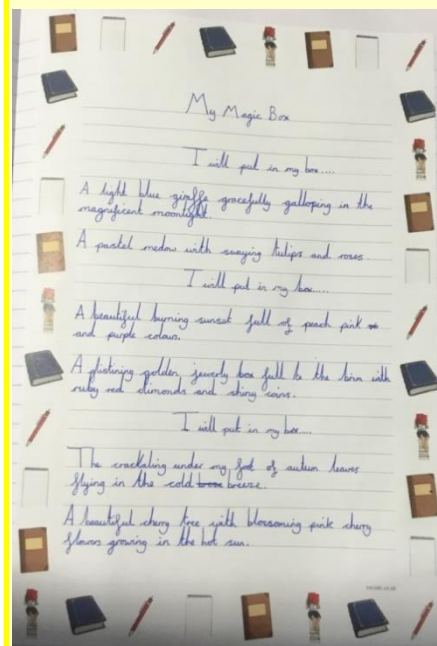 My Magic Box
I will put in my box....
A light blue giraffe gracefully galloping in the
magnificent moonlight.
A pastel medow with swaying tulips and roses.
I will put in my box....
A beautiful burning sunset full of peach pink
and purple colours.
A glistining golden jewerly box full to the brim with
ruby red dimonds and shiny coins.
I will put in my box....
The crackaling under my foot of autum leaves
flying in the cold breeze.
A beautiful cherry tree with blossoming pink cherry
flowers growing in the hot sun.